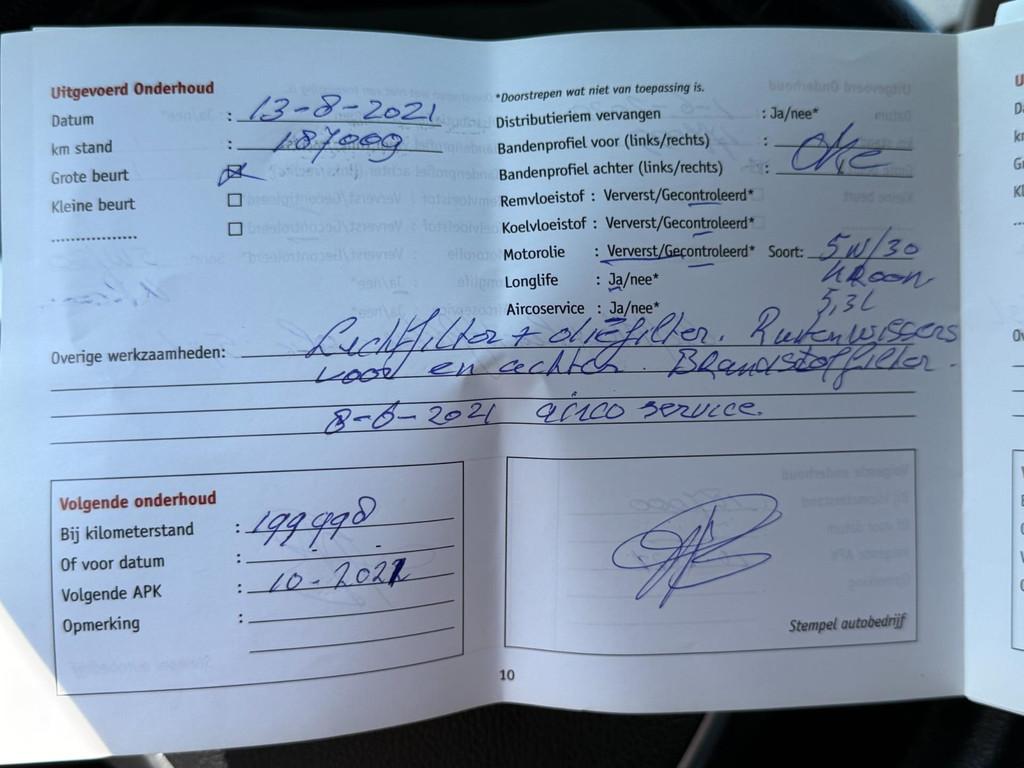 Uitgevoerd Onderhoud
Datum : 13-8-2021
km stand : 187009
Grote beurt
Kleine beurt
..................
*Doorstrepen wat niet van toepassing is.
Distributieriem vervangen : Ja/nee*
Bandenprofiel voor (links/rechts) :
Bandenprofiel achter (links/rechts) : oke
Remvloeistof : Ververst/Gecontroleerd*
Koelvloeistof : Ververst/Gecontroleerd*
Motorolie : Ververst/Gecontroleerd* Soort: 5W/30
KROON
Longlife : Ja/nee*
5,3L
Aircoservice : Ja/nee*
Overige werkzaamheden: Luchtfilter + oliefilter. Ruitenwissers
voor en achter. Brandstoffilter.
8-6-2021 airco service.
Volgende onderhoud
Bij kilometerstand : 199998
Of voor datum : - -
Volgende APK : 10-2021
Opmerking :
Stempel autobedrijf
10